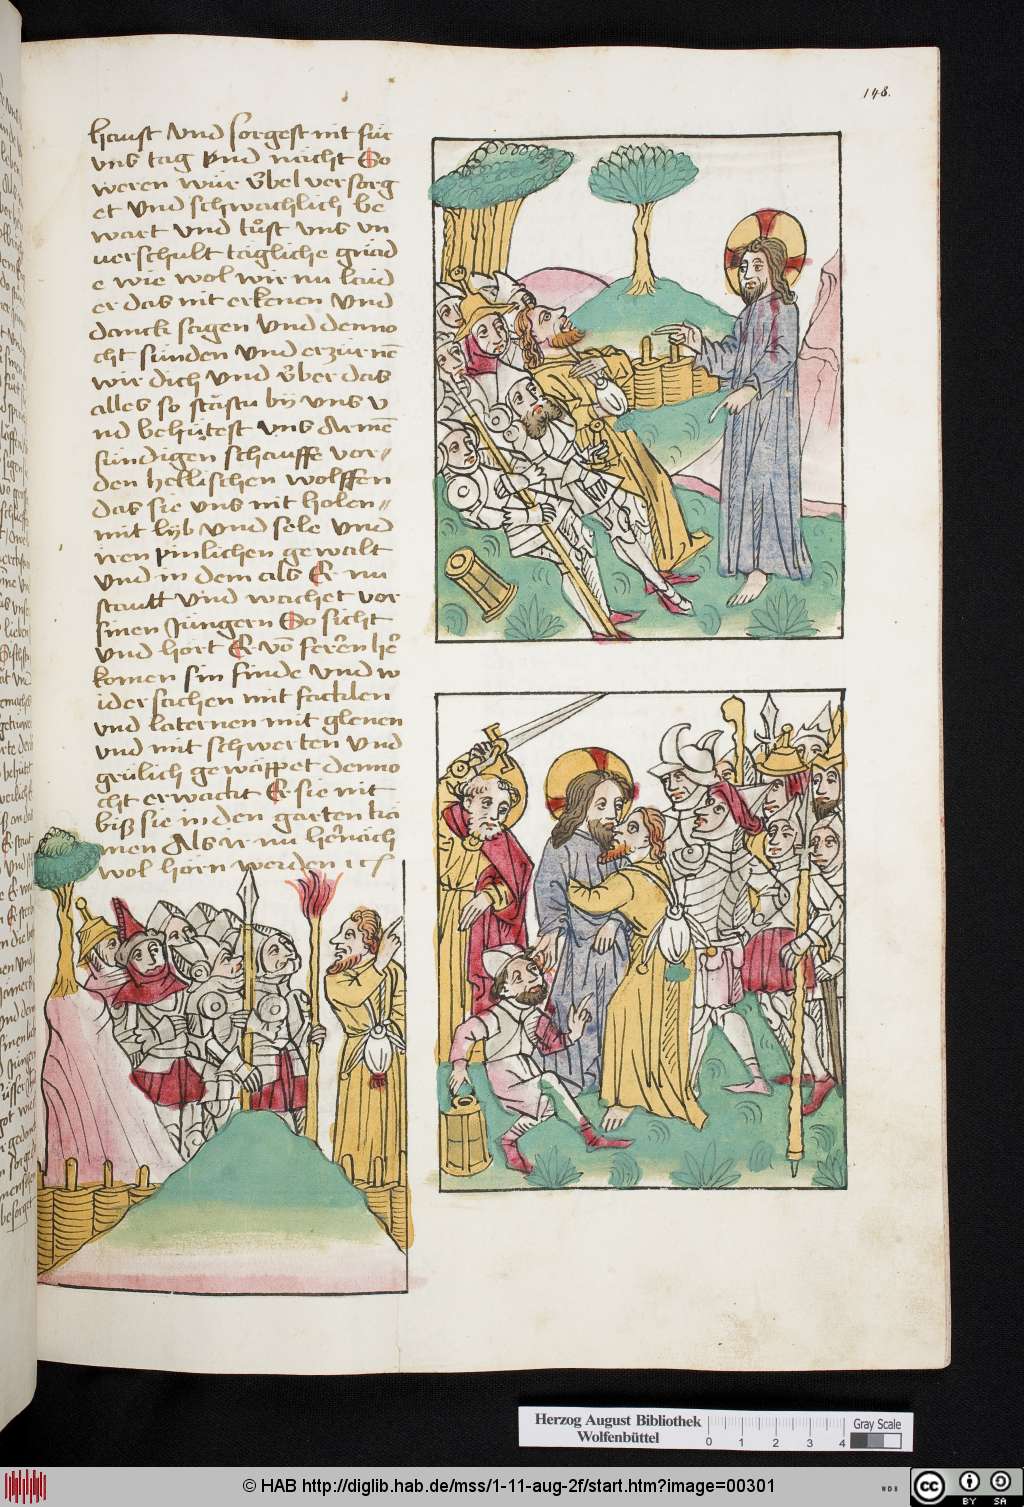 148.
haust vnd sorgest nit für
vns tag vnd nacht So
weren wür v̊bel versorg
et vnd schwachlich be
wart vnd tůst vns vn
verschult tägliche gnäd
e wie wol wir nu laid
er das nit erkenen vnd
danck sagen vnd denno
cht sünden vnd erzürnē
wir dich vnd v̊ber das
alles so stāstu bÿ vns v
nd behütest vns armē
sündigen schauffe vor〃
den hellischen wolffen
das sie vns nit holen〃
mit lyb vnd sele vnd
iren pinlichen gewalt
vnd in dem als Er nu
stautt vnd wachet vor
sinen Jüngern So sicht
vnd hört Er vō fereñ he᷑
komen sin finde vnd w
idersachen mit facklen
vnd laternen mit glenen
vnd mit schwerten vnd
grülich gewäppet denno
cht erwackt Er sie nit
biß sie in den garten kā
men Als ir nu he᷑nach
wol hörn werden ⁊c
Herzog August Bibliothek
Wolfenbüttel
0 1 2 3 4
Gray Scale
© HAB http://diglib.hab.de/mss/1-11-aug-2f/start.htm?image=00301
WDB
cc BY SA